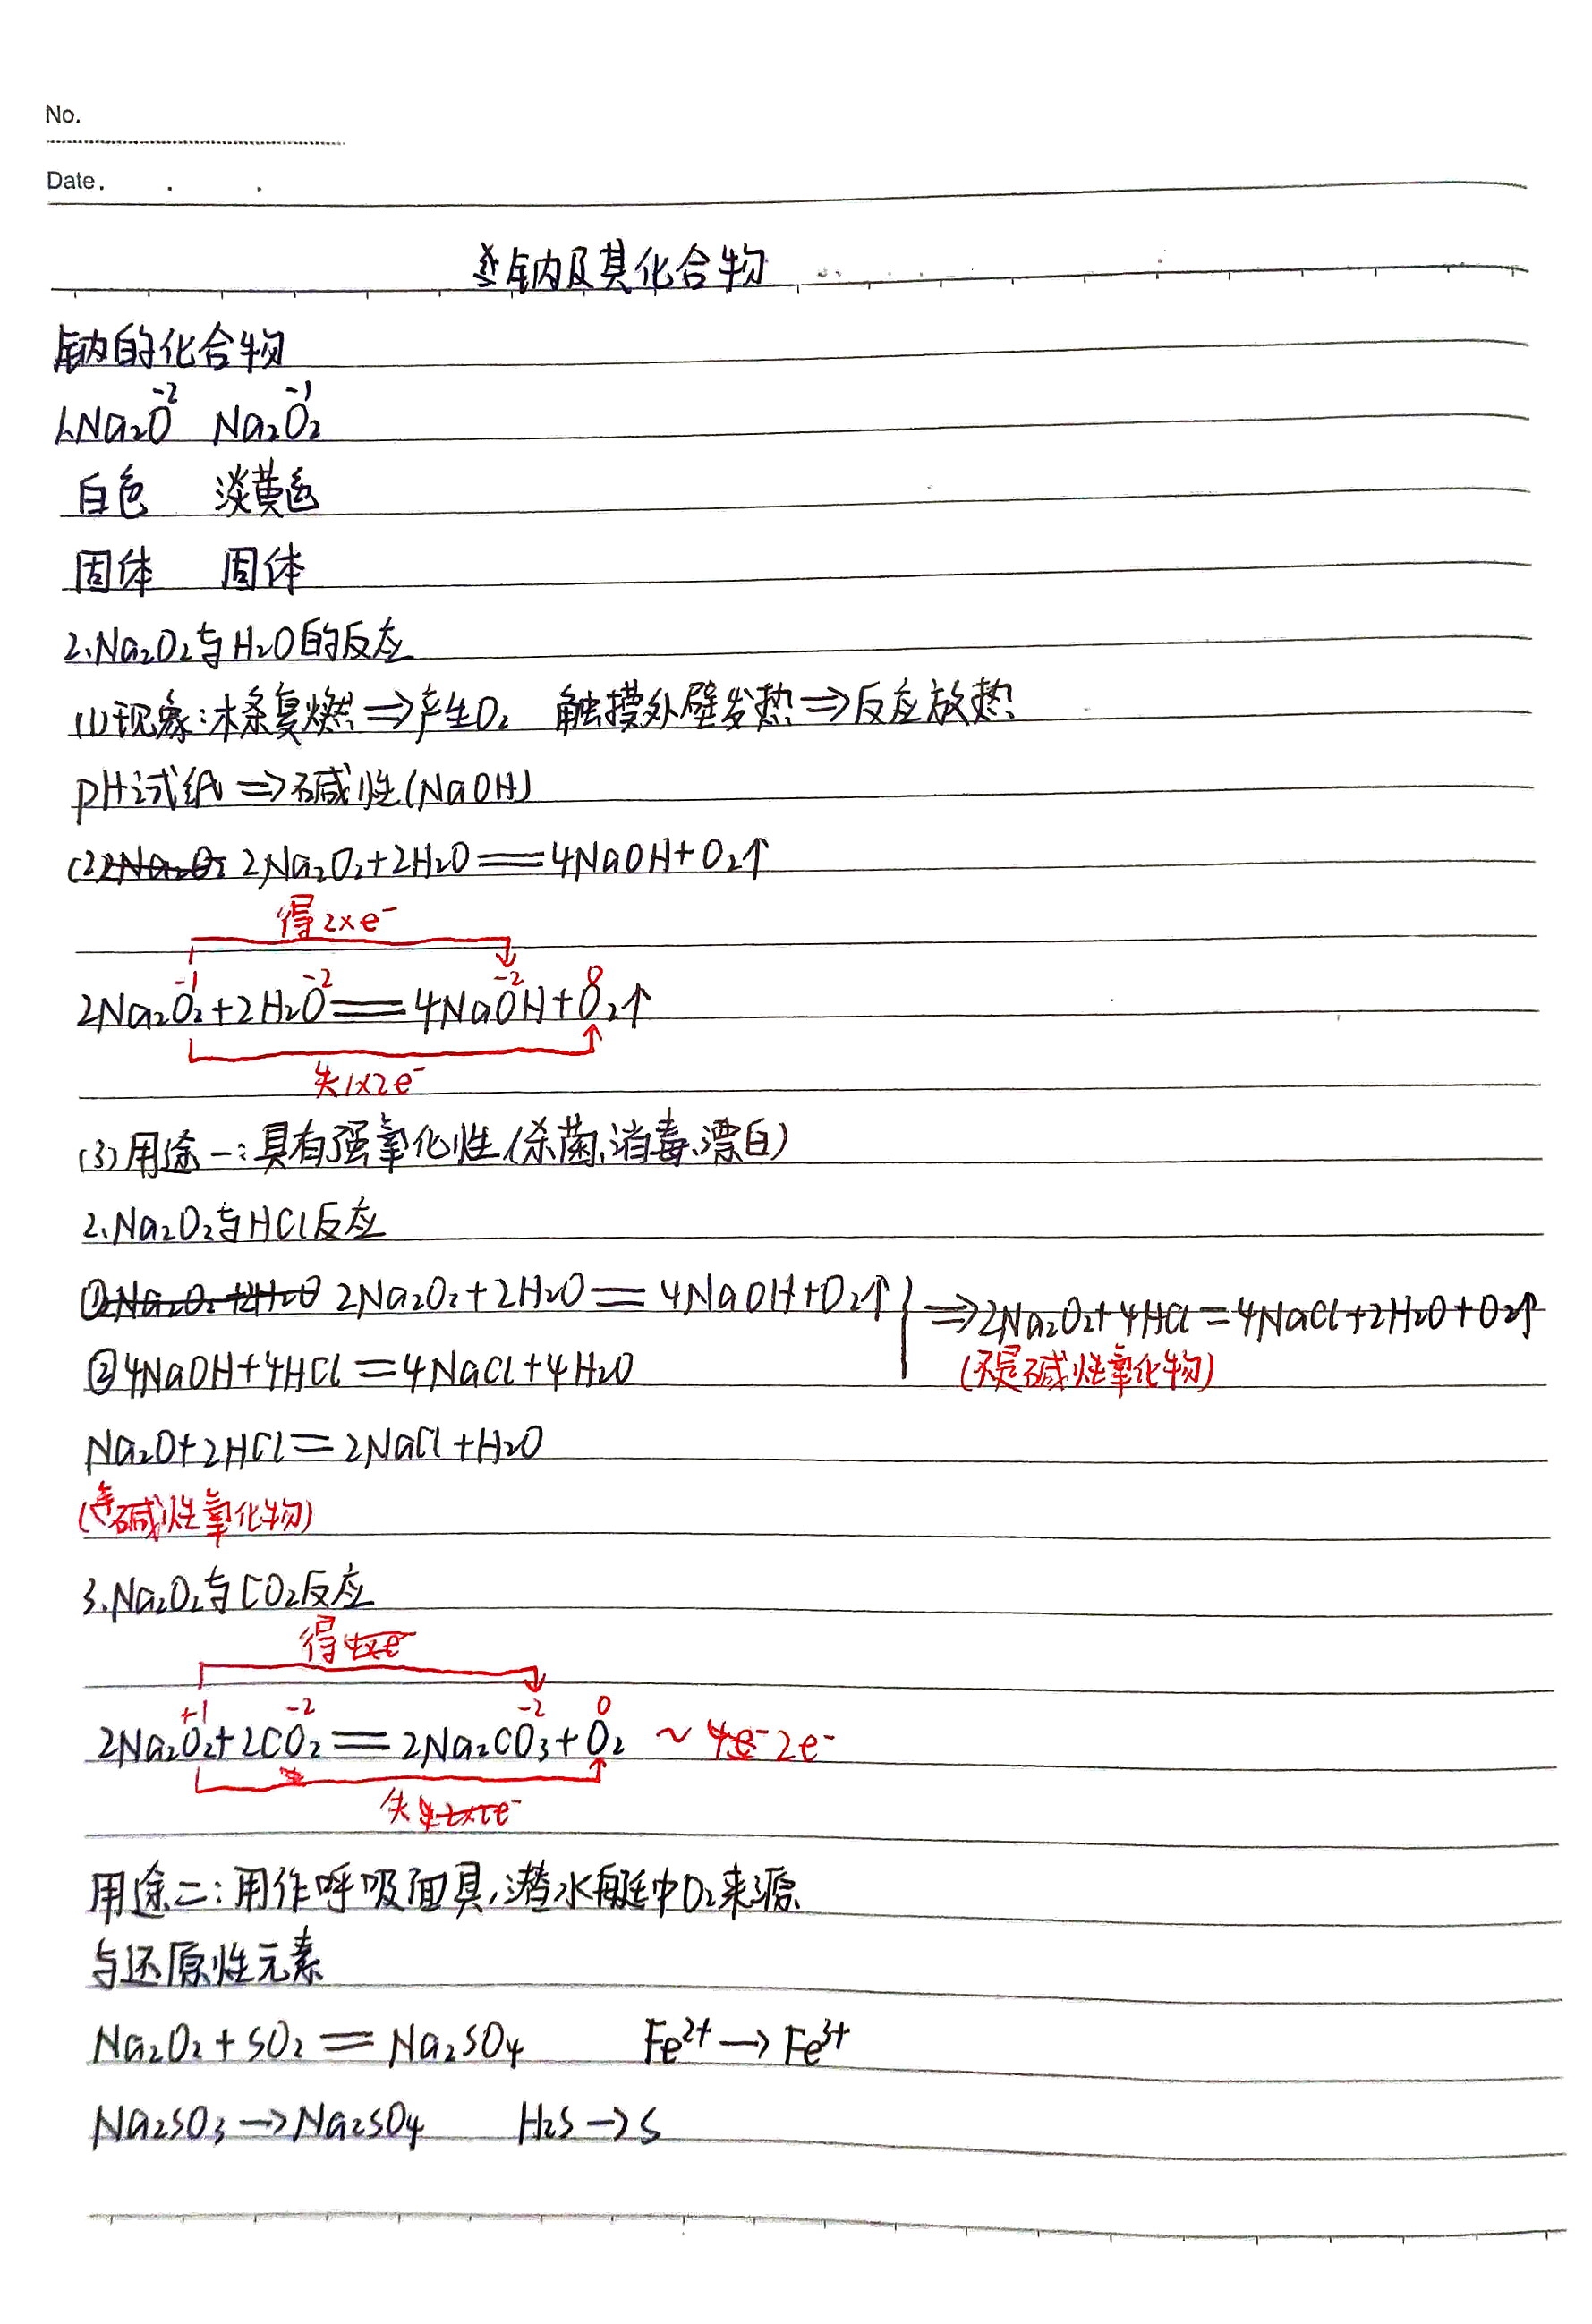 No.
Date.
钠及其化合物
钠的化合物
-2 -1
1.Na₂O Na₂O₂
白色 淡黄色
固体 固体
2.Na₂O₂与H₂O的反应
(1)现象:木条复燃⇒产生O₂ 触摸外壁发热⇒反应放热
pH试纸⇒碱性(NaOH)
(2) 2Na₂O₂+2H₂O══4NaOH+O₂↑
得2×e⁻
-1 -2 -2 0
2Na₂O₂+2H₂O══4NaOH+O₂↑
失1×2e⁻
(3)用途一:具有强氧化性(杀菌、消毒、漂白)
2.Na₂O₂与HCl反应
①2Na₂O₂+2H₂O 2Na₂O₂+2H₂O══4NaOH+O₂↑ }⇒2Na₂O₂+4HCl=4NaCl+2H₂O+O₂↑
②4NaOH+4HCl=4NaCl+4H₂O (不是碱性氧化物)
Na₂O+2HCl=2NaCl+H₂O
(是碱性氧化物)
3.Na₂O₂与CO₂反应
得
+1 -2 -2 0
2Na₂O₂+2CO₂══2Na₂CO₃+O₂ ~ 4e⁻ 2e⁻
失
用途二:用作呼吸面具,潜水艇中O₂来源
与还原性元素
Na₂O₂+SO₂══Na₂SO₄ Fe²⁺→Fe³⁺
Na₂SO₃→Na₂SO₄ H₂S→S